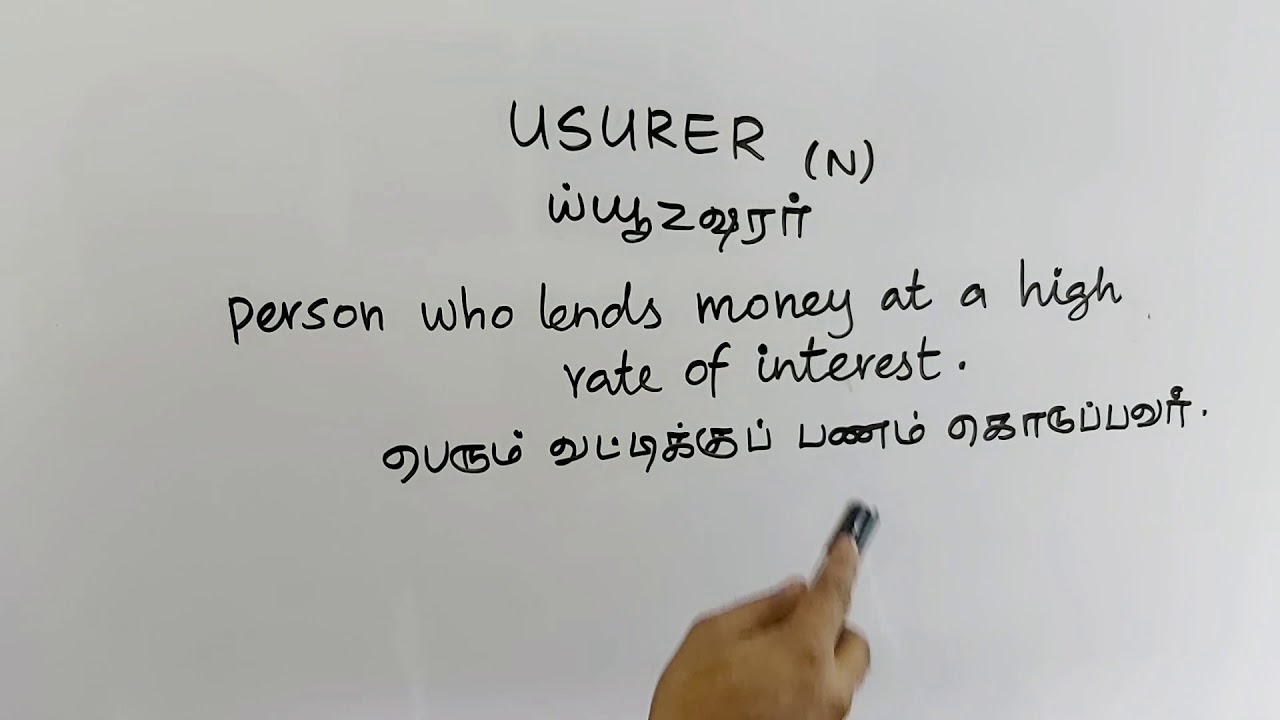 USURER (N)
ய்யூZஷரர்
person who lends money at a high
rate of interest.
பெரும் வட்டிக்குப் பணம் கொடுப்பவர்.